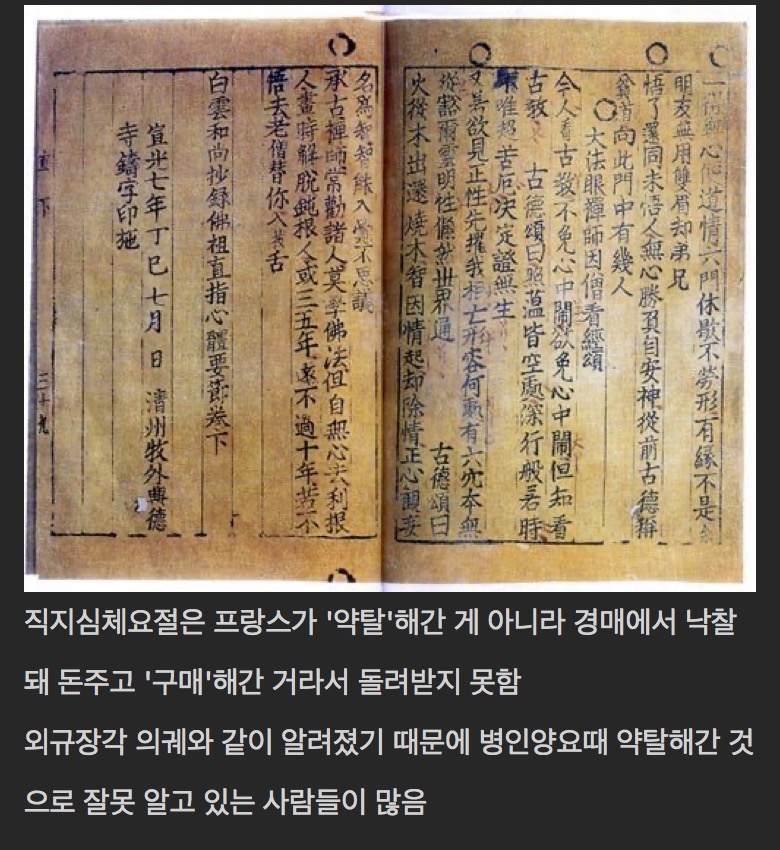 一得無心道情六門休歇不勞形有緣不是
朋友無用雙眉却弟兄
悟了還同未悟人無心勝負自安神從前古德稱
向此門中有幾人
大法眼禪師因僧看經頌
今人看古敎不免心中鬧欲免心中鬧但知看
古敎 古德頌曰照蘊皆空處深行般若時
唯超苦厄決定證無生
欲見正性先我相亡形容何有六本無
從豁爾靈明性儼然世界通 古德頌曰
火從木出還燒木智因情起却除情正心觀妄
名爲智能入不思議
承古禪師常勸諸人莫學佛法但自無心去利根
人晝時解脫鈍根人或三五年遠不過十年若不
悟去老僧替你入舌
白雲和尙抄錄佛祖直指心體要節卷下
宣光七年丁巳七月 日 清州牧外興德
寺鑄字印施
直下 三十九
직지심체요절은 프랑스가 '약탈'해간 게 아니라 경매에서 낙찰
돼 돈주고 '구매'해간 거라서 돌려받지 못함
외규장각 의궤와 같이 알려졌기 때문에 병인양요때 약탈해간 것
으로 잘못 알고 있는 사람들이 많음